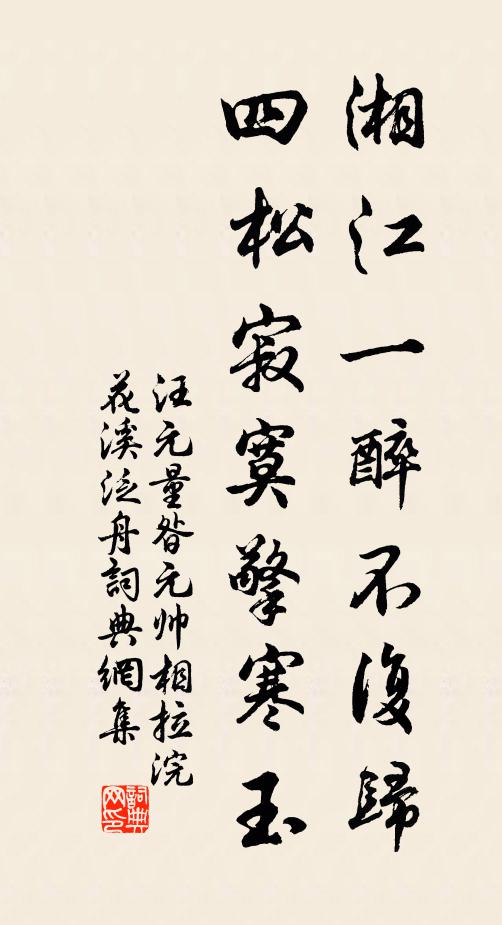 湘江一醉不復歸
四松寂寞擎寒玉
汪元量昝元帅相拉浣
花溪泛舟詞典網集
詞典
网印